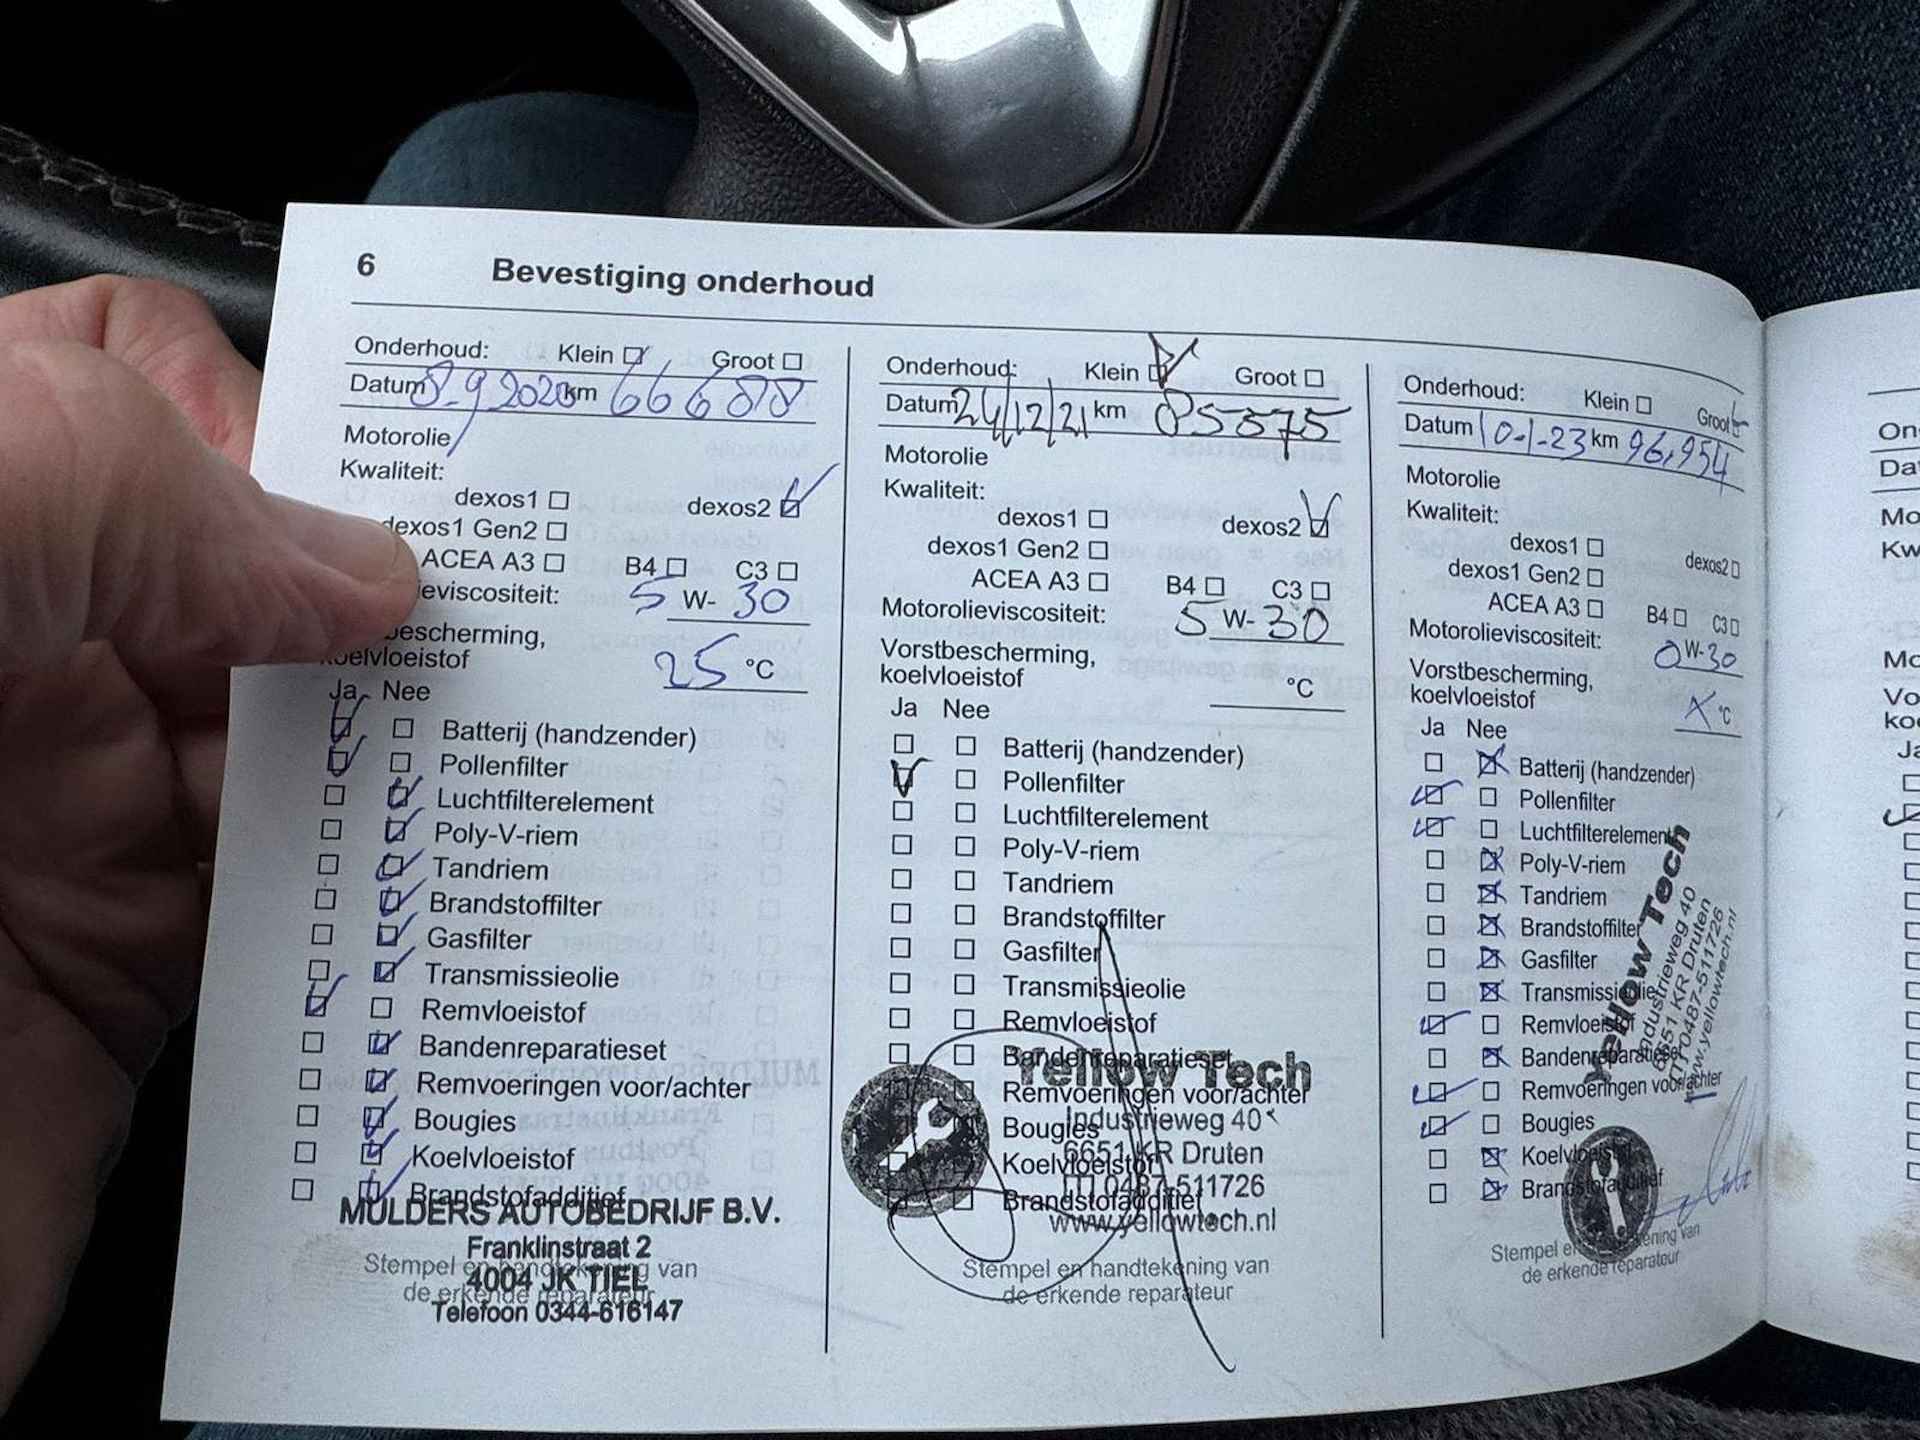 6 Bevestiging onderhoud
Onderhoud: Klein Groot
Datum 8-9 2020 km 66688
Motorolie
Kwaliteit:
dexos1 dexos2
dexos1 Gen2
ACEA A3 B4 C3
ieviscositeit: 5 W- 30
bescherming,
koelvloeistof 25 °C
Ja Nee
Batterij (handzender)
Pollenfilter
Luchtfilterelement
Poly-V-riem
Tandriem
Brandstoffilter
Gasfilter
Transmissieolie
Remvloeistof
Bandenreparatieset
Remvoeringen voor/achter
Bougies
Koelvloeistof
Brandstofadditief
MULDERS AUTOBEDRIJF B.V.
Franklinstraat 2
Stempel en handtekening van
4004 JK TIEL
de erkende reparateur
Telefoon 0344-616147
Onderhoud: Klein Groot
Datum 24/12/21 km 85575
Motorolie
Kwaliteit:
dexos1 dexos2
dexos1 Gen2
ACEA A3 B4 C3
Motorolieviscositeit: 5 W- 30
Vorstbescherming,
koelvloeistof °C
Ja Nee
Batterij (handzender)
Pollenfilter
Luchtfilterelement
Poly-V-riem
Tandriem
Brandstoffilter
Gasfilter
Transmissieolie
Remvloeistof
Bandenreparatieset
Yellow Tech
Remvoeringen voor/achter
Industrieweg 40
Bougies
6651 KR Druten
Koelvloeistof
0487-511726
Brandstofadditief
www.yellowtech.nl
Stempel en handtekening van
de erkende reparateur
Onderhoud: Klein Groot
Datum 10-1-23 km 96,954
Motorolie
Kwaliteit:
dexos1 dexos2
dexos1 Gen2
ACEA A3 B4 C3
Motorolieviscositeit: 0 W-30
Vorstbescherming,
koelvloeistof X °C
Ja Nee
Batterij (handzender)
Pollenfilter
Luchtfilterelement
Poly-V-riem
Tandriem
Brandstoffilter
Gasfilter
Transmissieolie
Remvloeistof
Bandenreparatieset
Remvoeringen voor/achter
Bougies
Koelvloeistof
Brandstofadditief
Yellow Tech
Industrieweg 40
6651 KR Druten
0487-511726
www.yellowtech.nl
Stempel en handtekening van
de erkende reparateur